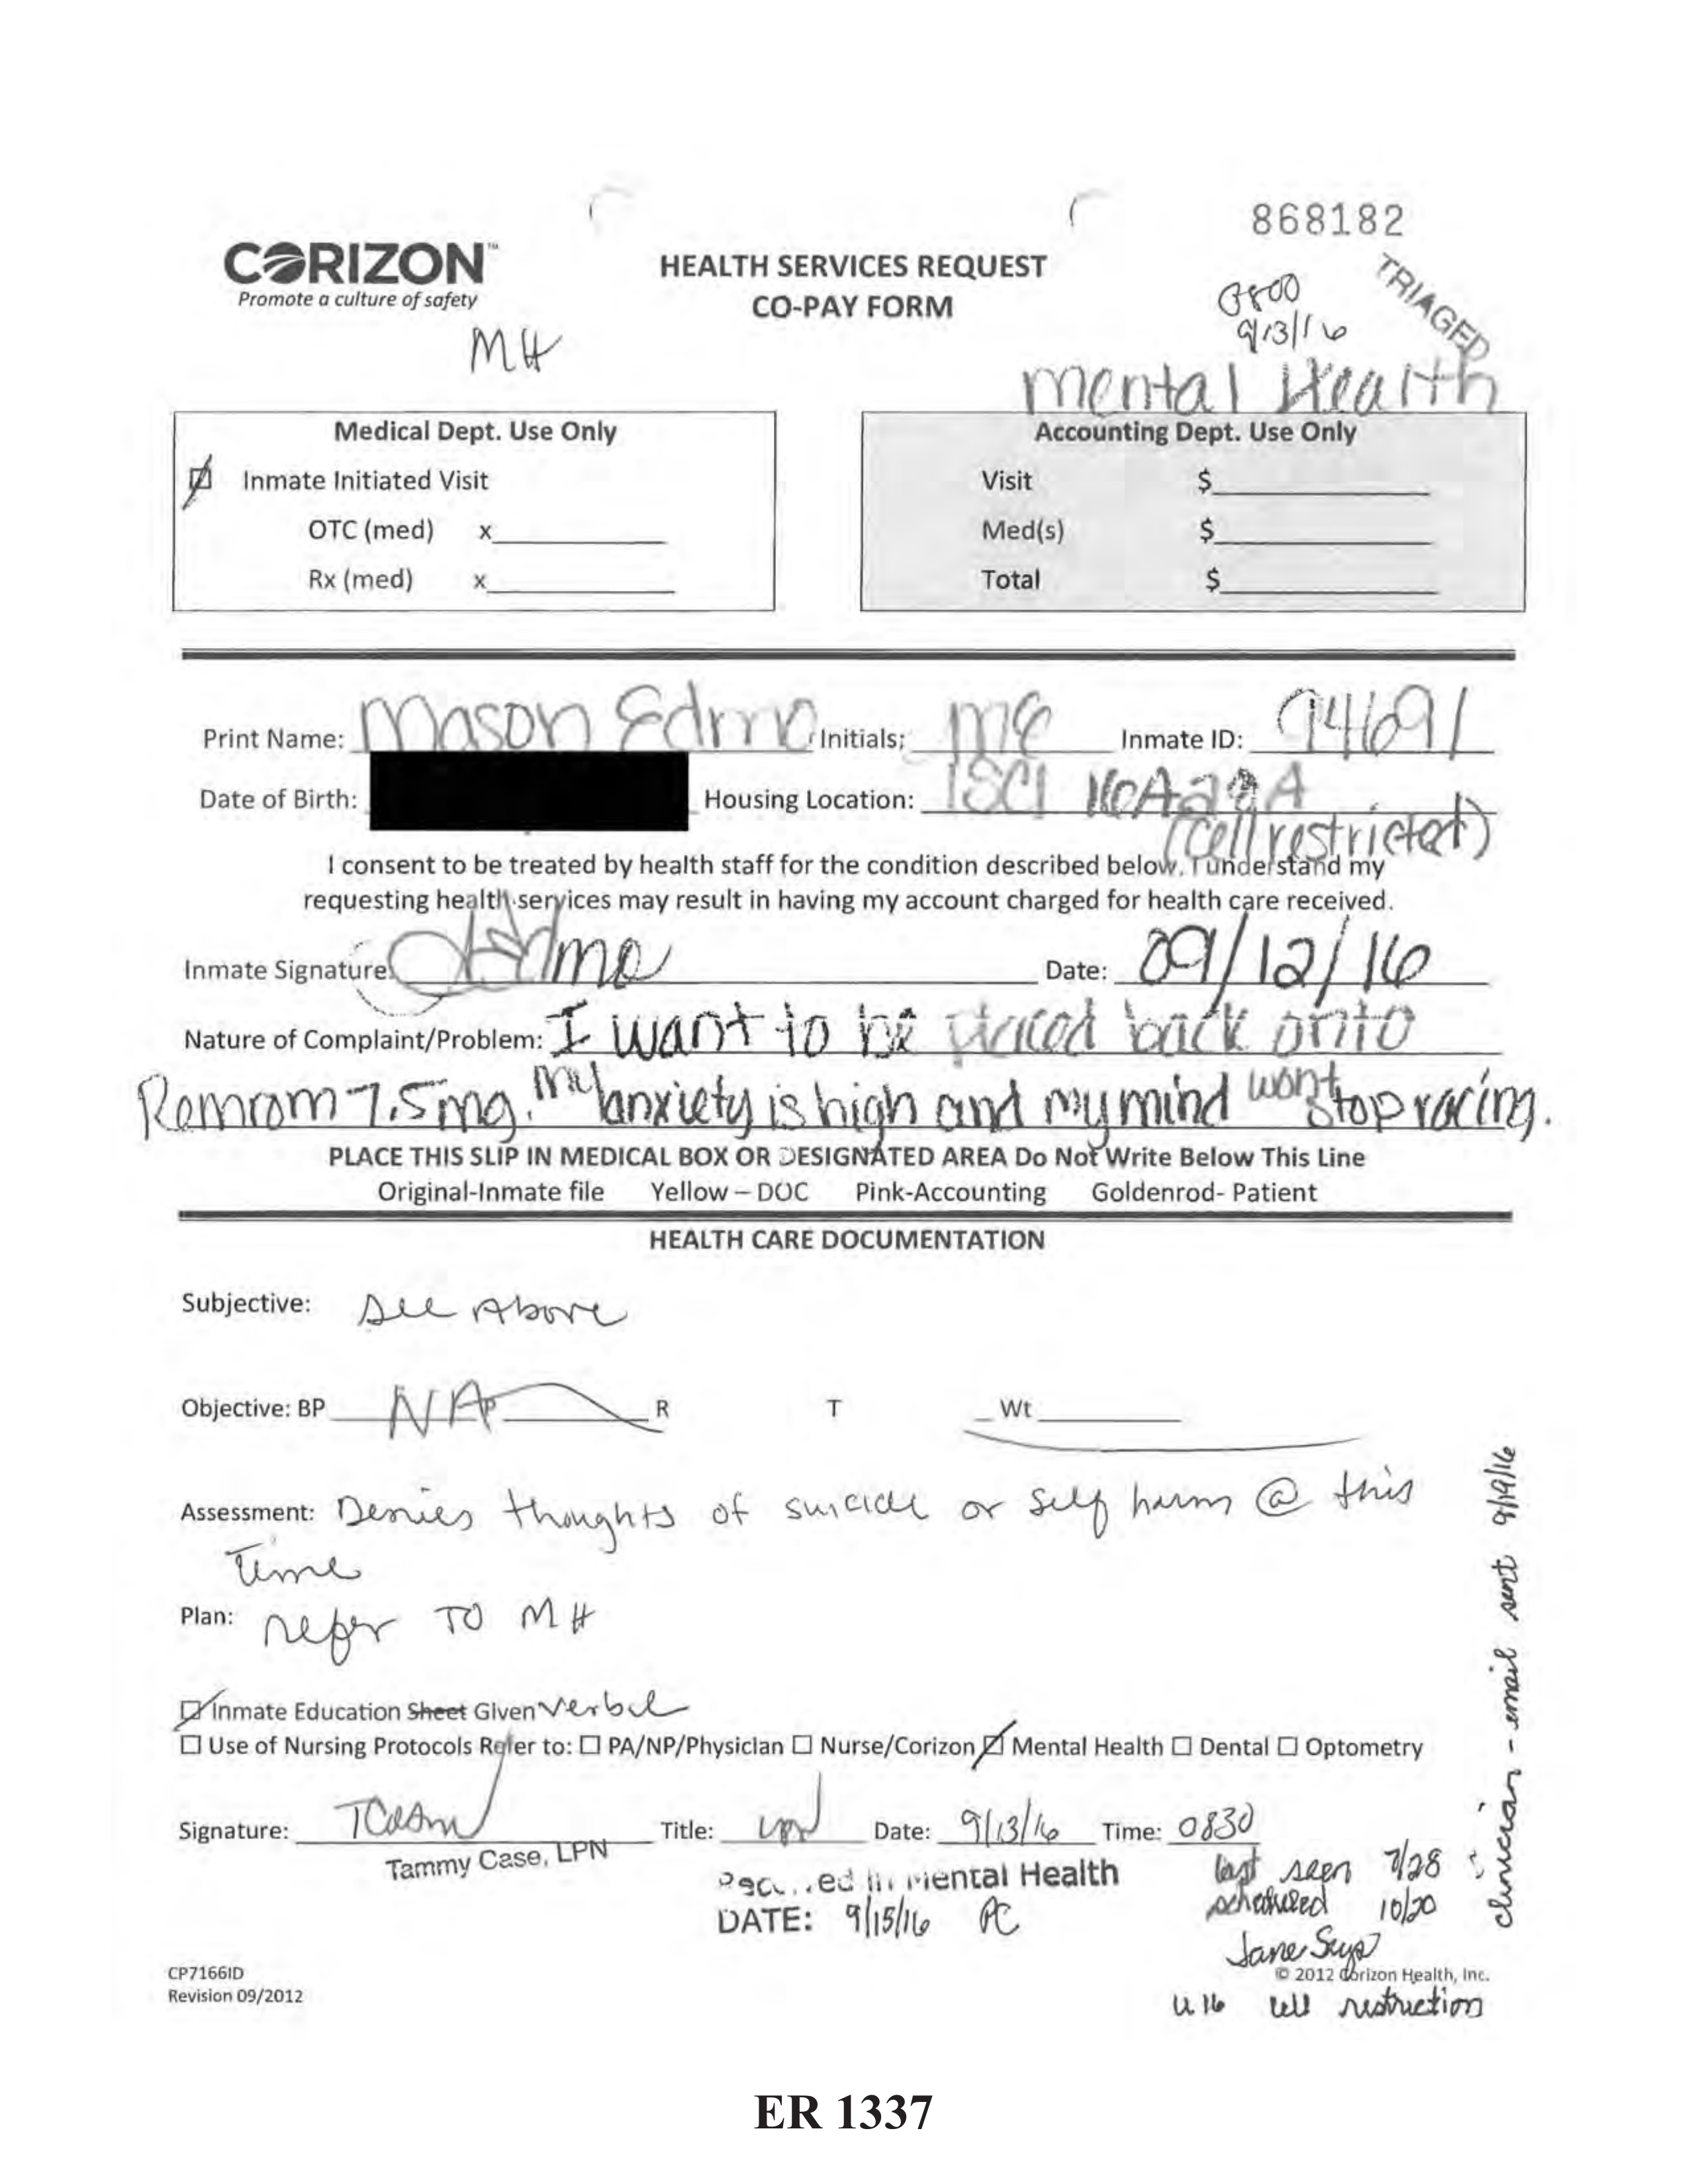 868182
CORIZON™
Promote a culture of safety
HEALTH SERVICES REQUEST
CO-PAY FORM
0800
9/13/16
TRIAGED
MH
Mental Health
Medical Dept. Use Only
Inmate Initiated Visit
OTC (med) x
Rx (med) x
Accounting Dept. Use Only
Visit $
Med(s) $
Total $
Print Name: Mason Edmo Initials: ME Inmate ID: 94691
Date of Birth: Housing Location: ISCI 16A
(cell restricted)
I consent to be treated by health staff for the condition described below. I understand my
requesting health services may result in having my account charged for health care received.
Inmate Signature: Edmo Date: 09/12/16
Nature of Complaint/Problem: I want to be placed back onto
Remrom 7.5mg. my anxiety is high and my mind wont stop racing.
PLACE THIS SLIP IN MEDICAL BOX OR DESIGNATED AREA Do Not Write Below This Line
Original-Inmate file Yellow – DOC Pink-Accounting Goldenrod- Patient
HEALTH CARE DOCUMENTATION
Subjective: See Above
Objective: BP NA P R T Wt
Assessment: Denies thoughts of suicide or self harm @ this
time
Plan: refer TO MH
Inmate Education Sheet Given Verbal
Use of Nursing Protocols Refer to: PA/NP/Physician Nurse/Corizon Mental Health Dental Optometry
Signature: TCase Title: LPN Date: 9/13/16 Time: 0830
Tammy Case, LPN
Received in Mental Health
DATE: 9/15/16 PC
last seen 7/28
scheduled 10/20
clinician - email sent 9/19/16
CP7166ID
Revision 09/2012
© 2012 Corizon Health, Inc.
U 16 cell restriction
ER 1337